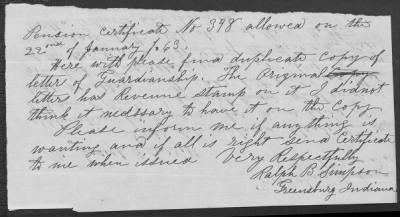 Pension Certificate No 398 allowed on the
22nd of January 1863.
Here with please find duplicate copy of
letter of Guardianship. The Original copy
letter has Revenue stamp on it I did not
think it necessary to have it on the Copy
Please inform me if anything is
wanting and if all is right send Certificate
to me when issued Very Respectfully
Ralph B Simpson
Greensburg Indiana